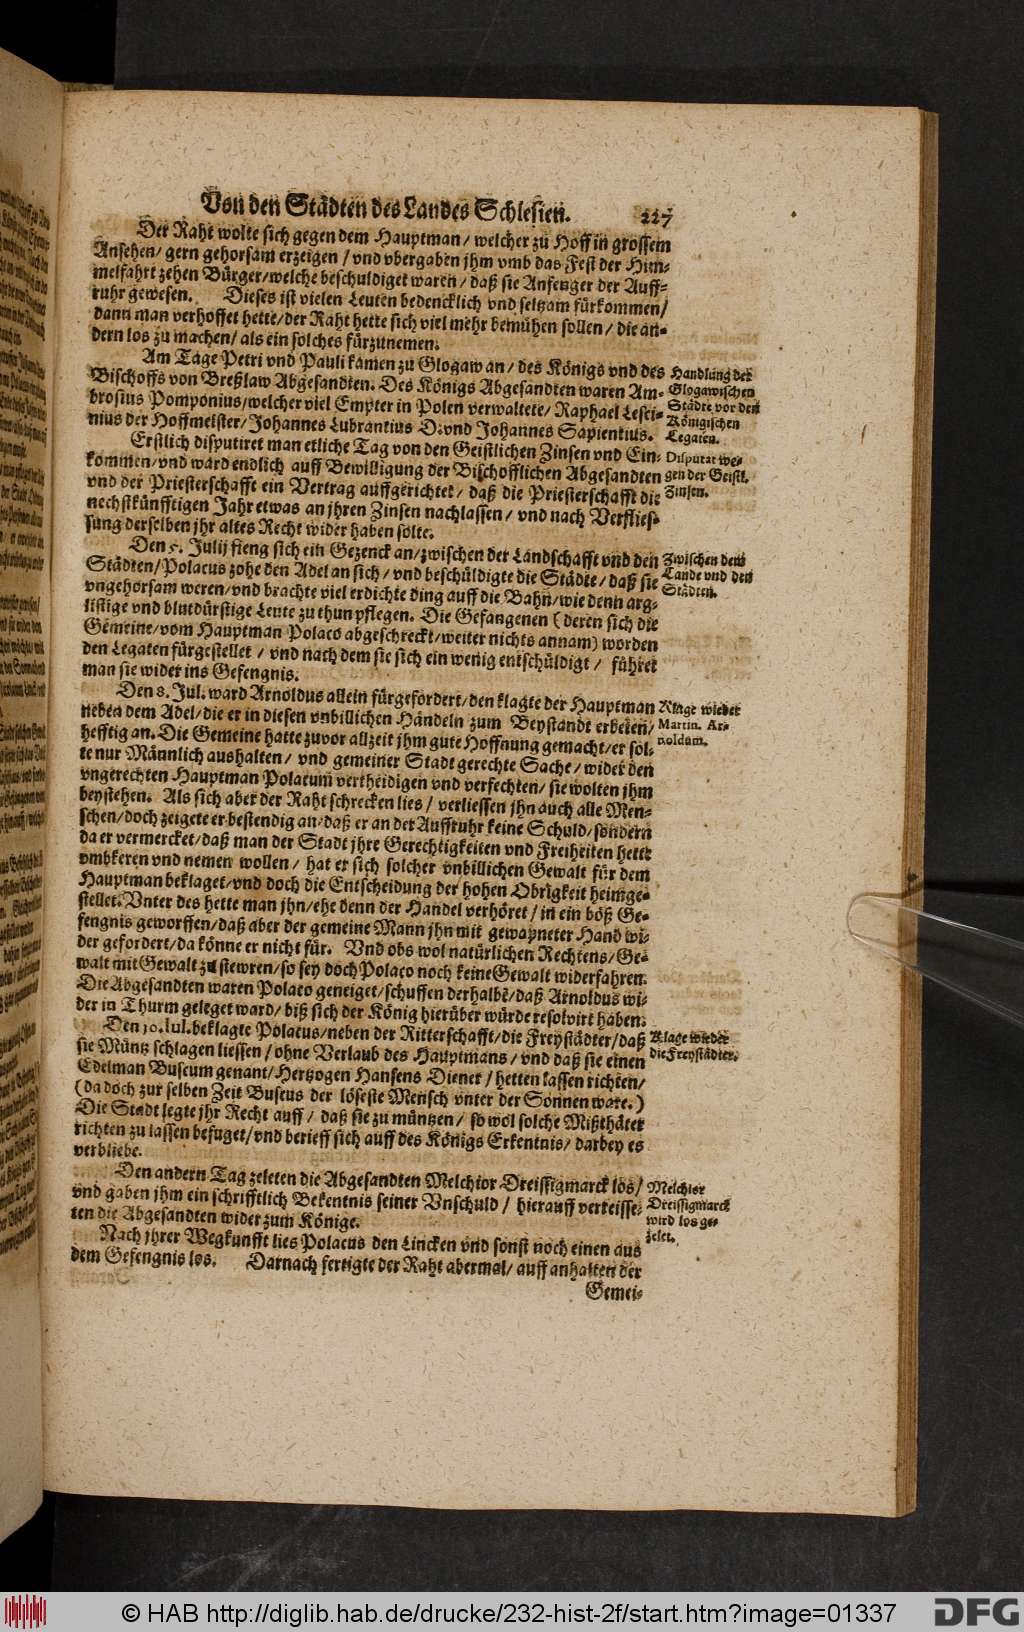 Von den Städten des Landes Schlesien. 227
Der Raht wolte sich gegen dem Hauptman / welcher zu Hoff in grossem
Ansehen / gern gehorsam erzeigen / vnd vbergaben jhm vmb das Fest der Him-
melfahrt zehen Bürger / welche beschuldiget waren / daß sie Anfenger der Auff-
ruhr gewesen. Dieses ist vielen Leuten bedencklich vnd seltzam fürkommen /
dann man verhoffet hette / der Raht hette sich viel mehr bemühen sollen / die an-
dern los zu machen / als ein solches fürzunemen.
Am Tage Petri vnd Pauli kamen zu Glogaw an / des Königs vnd des
Bischoffs von Breßlaw Abgesandten. Des Königs Abgesandten waren Am-
brosius Pomponius / welcher viel Empter in Polen verwaltete / Raphael Lesci-
nius der Hoffmeister / Johannes Lubrantius D. vnd Johannes Sapientius.
Handlung der
Glogawischen
Städte vor den
Königischen
Legaten.
Erstlich disputiret man etliche Tag von den Geistlichen Zinsen vnd Ein-
kommen / vnd ward endlich auff Bewilligung der Bischofflichen Abgesandten
vnd der Priesterschafft ein Vertrag auffgerichtet / daß die Priesterschafft die
nechstkünfftigen Jahr etwas an jhren Zinsen nachlassen / vnd nach Verflies-
sung derselben jhr altes Recht wider haben solte.
Disputat we-
gen der Geistl.
Zinsen.
Den 5. Julij fieng sich ein Gezenck an / zwischen der Landschafft vnd den
Städten / Polacus zohe den Adel an sich / vnd beschüldigte die Städte / daß sie
vngehorsam weren / vnd brachte viel erdichte ding auff die Bahn / wie denn arg-
listige vnd blutdürstige Leute zu thun pflegen. Die Gefangenen (deren sich die
Gemeine / vom Hauptman Polaco abgeschreckt / weiter nichts annam) worden
den Legaten fürgestellet / vnd nach dem sie sich ein wenig entschüldigt / führet
man sie wider ins Gefengnis.
Zwischen dem
Lande vnd den
Städten.
Den 8. Jul. ward Arnoldus allein fürgefordert / den klagte der Hauptman
neben dem Adel / die er in diesen vnbillichen Händeln zum Beystandt erbeten /
hefftig an. Die Gemeine hatte zuvor allzeit jhm gute Hoffnung gemacht / er sol-
te nur Männlich aushalten / vnd gemeiner Stadt gerechte Sache / wider den
vngerechten Hauptman Polacum vertheidigen vnd verfechten / sie wolten jhm
beystehen. Als sich aber der Raht schrecken lies / verliessen jhn auch alle Men-
schen / doch zeigete er bestendig an / daß er an der Auffruhr keine Schuld / sondern
da er vermercket / daß man der Stadt jhre Gerechtigkeiten vnd Freiheiten hette
vmbkeren vnd nemen wollen / hat er sich solcher vnbillichen Gewalt für dem
Hauptman beklaget / vnd doch die Entscheidung der hohen Obrigkeit heimge-
stellet. Vnter des hette man jhn / ehe denn der Handel verhöret / in ein böß Ge-
fengnis geworffen / daß aber der gemeine Mann jhn mit gewapneter Hand wi-
der gefordert / da könne er nicht für. Vnd obs wol natürlichen Rechtens / Ge-
walt mit Gewalt zu stewren / so sey doch Polaco noch keine Gewalt widerfahren.
Die Abgesandten waren Polaco geneiget / schuffen derhalbē / daß Arnoldus wi-
der in Thurm geleget ward / biß sich der König hierüber würde resolvirt haben.
Klage wieder
Martin. Ar-
noldum.
Den 10. Iul. beklagte Polacus / neben der Ritterschafft / die Freystädter / daß
sie Müntz schlagen liessen / ohne Verlaub des Hauptmans / vnd daß sie einen
Edelman Buseum genant / Hertzogen Hansens Diener / hetten lassen richten /
(da doch zur selben Zeit Buseus der löseste Mensch vnter der Sonnen ware.)
Die Stadt legte jhr Recht auff / daß sie zu müntzen / so wol solche Mißthäter
richten zu lassen befuget / vnd berieff sich auff des Königs Erkentnis / darbey es
verbliebe.
Klage wieder
die Freystädter.
Den andern Tag zeleten die Abgesandten Melchior Dreissigmarck los /
vnd gaben jhm ein schrifftlich Bekentnis seiner Vnschuld / hierauff verreisse-
ten die Abgesandten wider zum Könige.
Melchior
Dreissigmarck
wird los ge-
zelet.
Nach jhrer Wegkunfft lies Polacus den Lincken vnd sonst noch einen aus
dem Gefengnis los. Darnach fertigte der Raht abermal / auff anhalten der
Gemei-
© HAB http://diglib.hab.de/drucke/232-hist-2f/start.htm?image=01337
DFG